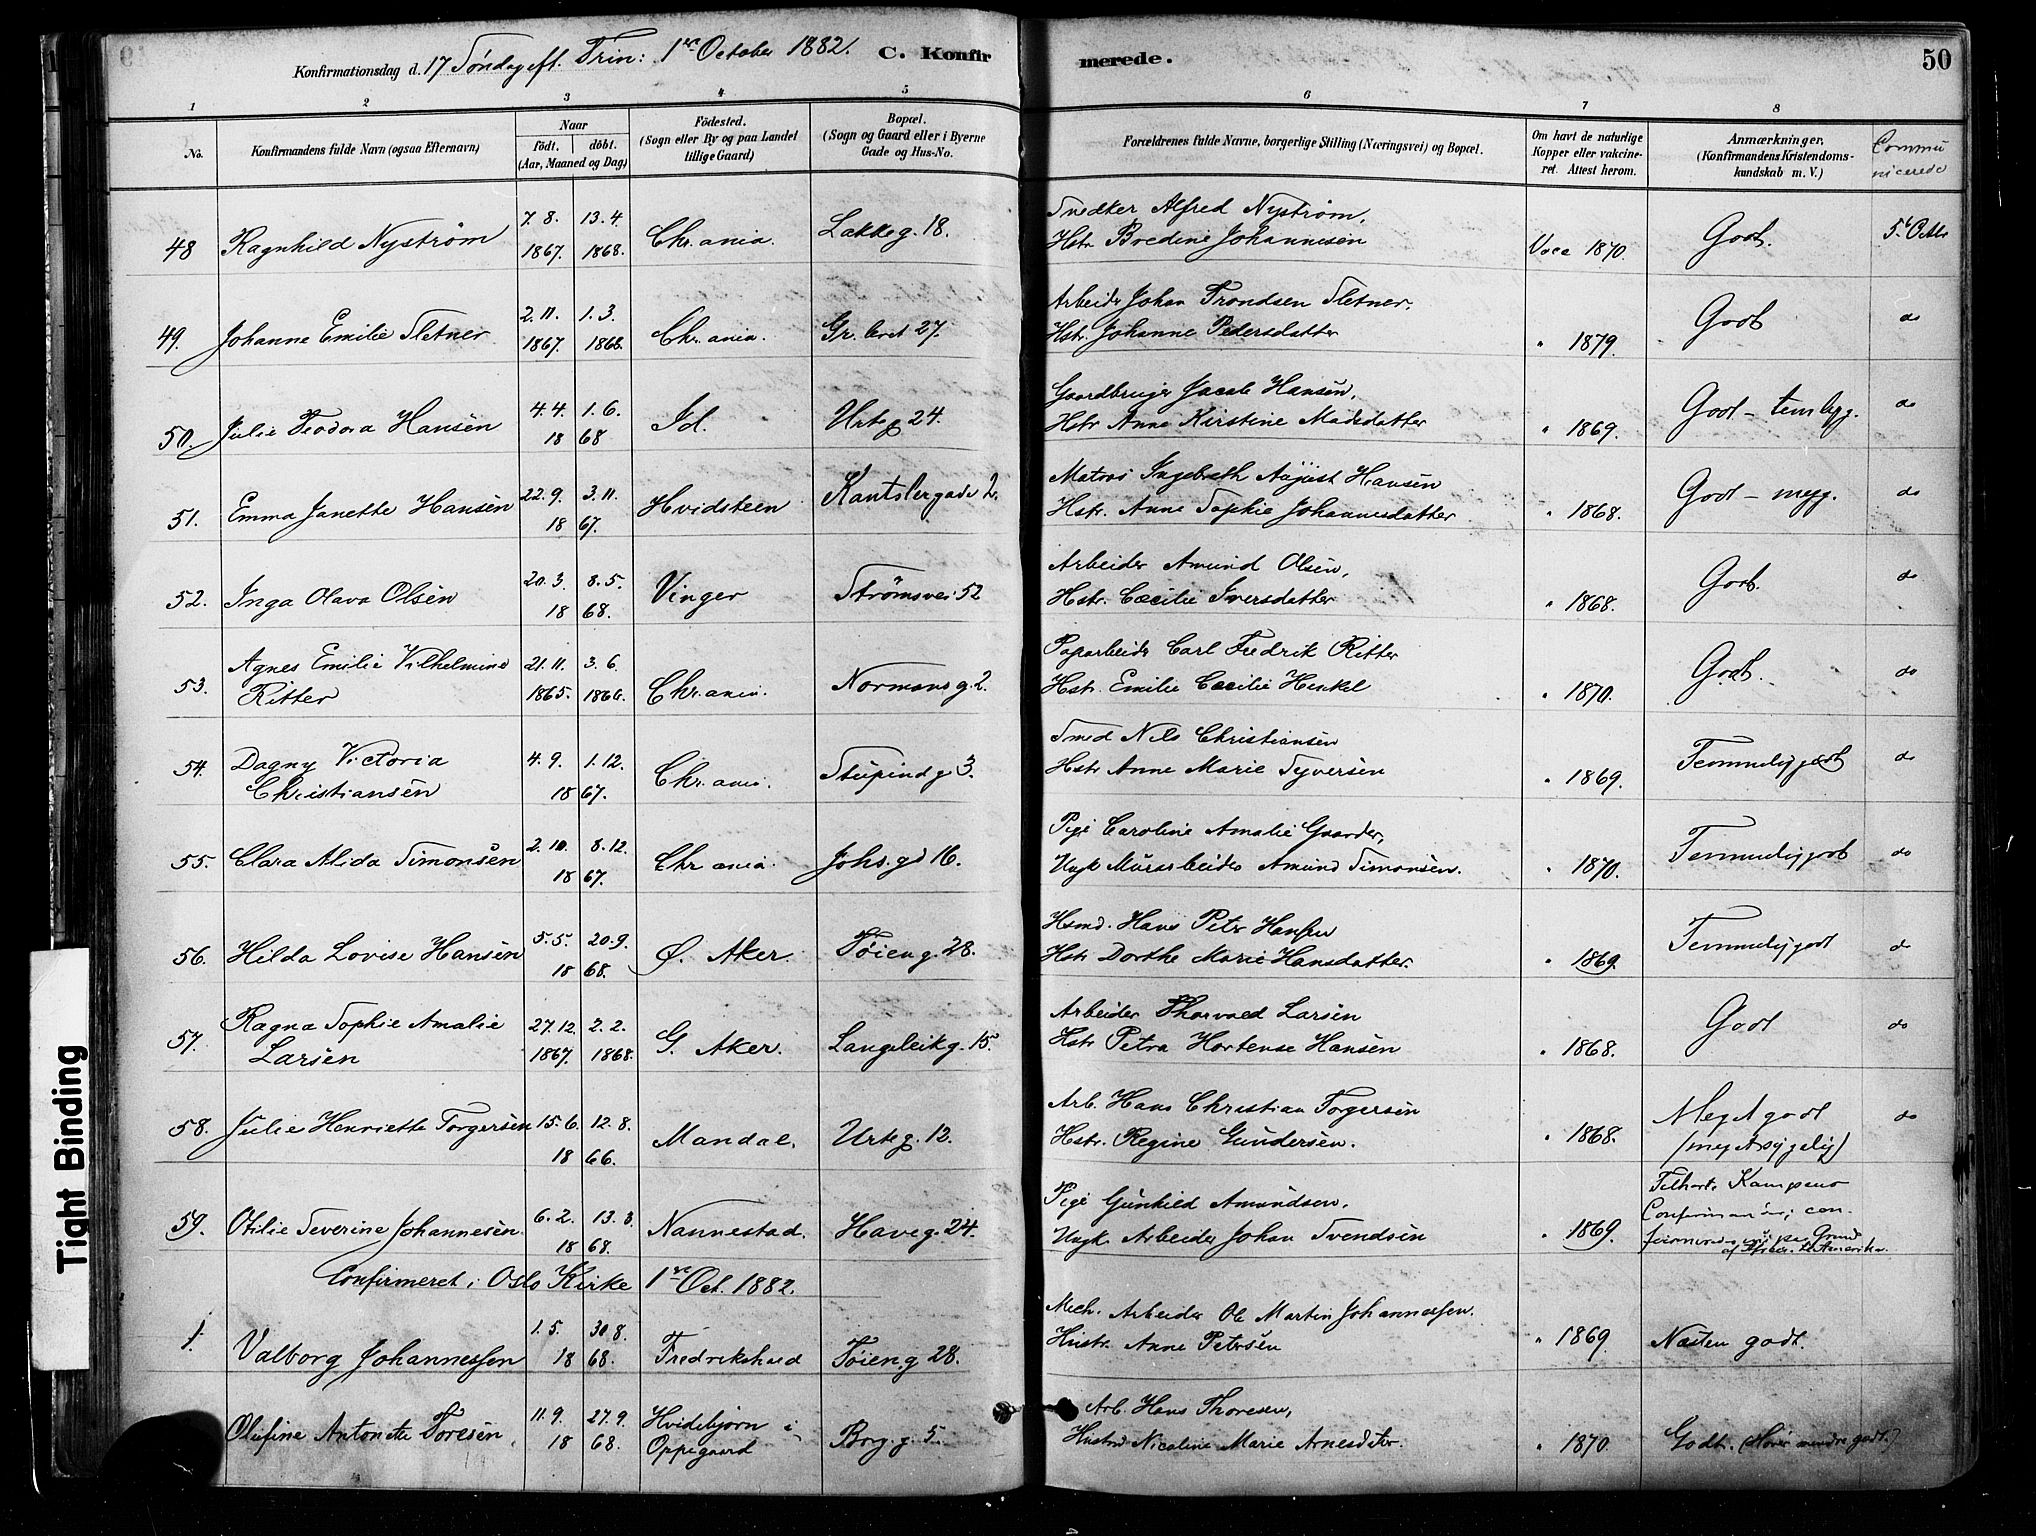 Konfirmationsdag d. 17 Søndag eft. Trin: 1ste October 1882. C. Konfirmerede. 50
1 2 3 4 5 6 7 8
No.
Konfirmandens fulde Navn (ogsaa Efternavn)
Naar
födt. döbt.
(Aar, Maaned og Dag)
Födested.
(Sogn eller By og paa Landet
tillige Gaard)
Bopæl.
(Sogn og Gaard eller i Byerne
Gade og Hus-No.
Forældrenes fulde Navne, borgerlige Stilling (Næringsvei) og Bopæl.
Om havt de naturlige
Kopper eller vakcine-
ret. Attest herom.
Anmærkninger,
(Konfirmandens Kristendoms-
kundskab m. V.)
Commu
nicerede
48 Ragnhild Nystrøm 7.8. 1867. 13.4. 1868. Chr.ania. Lakkeg. 18. Snedker Alfred Nystrøm,
Hstr. Bredine Johannesen Vacc 1870. Godt. 5t Octbr
49. Johanne Emilie Sletner 2.11. 1867. 1.3. 1868. Chr.ania. Gr.leret 27. Arbeider Johan Trondsen Sletner,
Hstr. Johanne Pedersdatter " 1879. Godt do
50. Julie Teodora Hansen 4.4. 1.6. 1868 Id. Urteg 24. Gaardbruger Jacob Hansen,
Hstr Anne Kirstine Madsdatter " 1869. Godt - temlig. do
51. Emma Janette Hansen 22.9. 3.11. 1867. Hvidsteen Kantslergade 2. Matros Ingebreth August Hansen
Hstr. Anne Sophie Johannesdatter " 1868. Godt - megg. do
52. Inga Olava Olsen 20.3. 8.5. 1868. Vinger Strømsvei 52 Arbeider Amund Olsen,
Hstr. Cæcilie Iversdatter " 1868. Godt. do
53. Agnes Emilie Vilhelmine
Ritter 21.11. 1865. 3.6. 1866. Chr.ania. Normansg. 2. Paparbeider Carl Fredrik Ritter
Hstr. Emilie Cæcilie Henkel " 1870. Godt. do
54. Dagny Victoria
Christiansen 4.9. 1.12. 1867. Chr.ania. Stupindg 3. Smed Nils Christiansen
Hstr Anne Marie Syversen " 1869. Temmelig godt do
55. Clara Alida Simonsen 2.10. 8.12. 1867. Chr ania. Johs. gd 16. Pige Caroline Amalie Gaarder,
Ungk Murarbeider Amund Simonsen. " 1870. Temmelig godt do
56. Hilda Lovise Hansen 5.5. 20.9. 1868. Ø. Aker. Tøieng. 28. Hsmd. Hans Peter Hansen
Hstr Dorthe Marie Hansdatter. " 1869. Temmelig godt do
57. Ragna Sophie Amalie
Larsen 27.12. 1867. 2.2. 1868. G. Aker. Langleikg. 15. Arbeider Thorvald Larsen
Hstr Petra Hortense Hansen " 1868. Godt do
58. Julie Henriette Torgersen 15.6. 12.8. 1866. Mandal. Urteg. 12. Arb. Hans Christian Torgersen
Hstr. Regine Gundersen. " 1868. Meget godt
(meget sygelig) do
59. Otilie Severine Johannesen. 6.2. 13.3. 1868. Nannestad. Haveg. 24. Pige Gunhild Amundsen,
Ungk. Arbeider Johan Svendsen " 1869. Tilhørte Kampens
Confirmander; con-
firmeredes nu paa Grund
af Afreise t. Amerika.
Confirmeret i Oslo Kirke 1ste Oct. 1882.
1. Valborg Johannessen 1.5. 30.8. 1868. Fredrikshald Tøieng 28. Mech. Arbeider Ole Martin Johannessen.
Hustr. Anne Petersen " 1869. Næsten godt.
Olufine Antonette Toresen. 11.9. 27.9. 1868. Hvidebjørn i
Oppegaard Borg.g. 5. Arb. Hans Thoresen,
Hustru Nicoline Marie Arnesdtter. " 1870. Godt. (Skriver mindre godt.)
Tight Binding